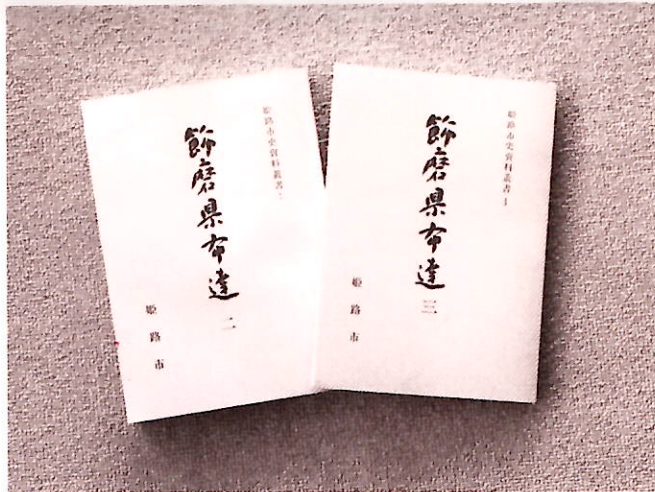 姫路市史資料叢書
飾磨県布達 二
姫路市
姫路市史資料叢書
飾磨県布達 三
姫路市